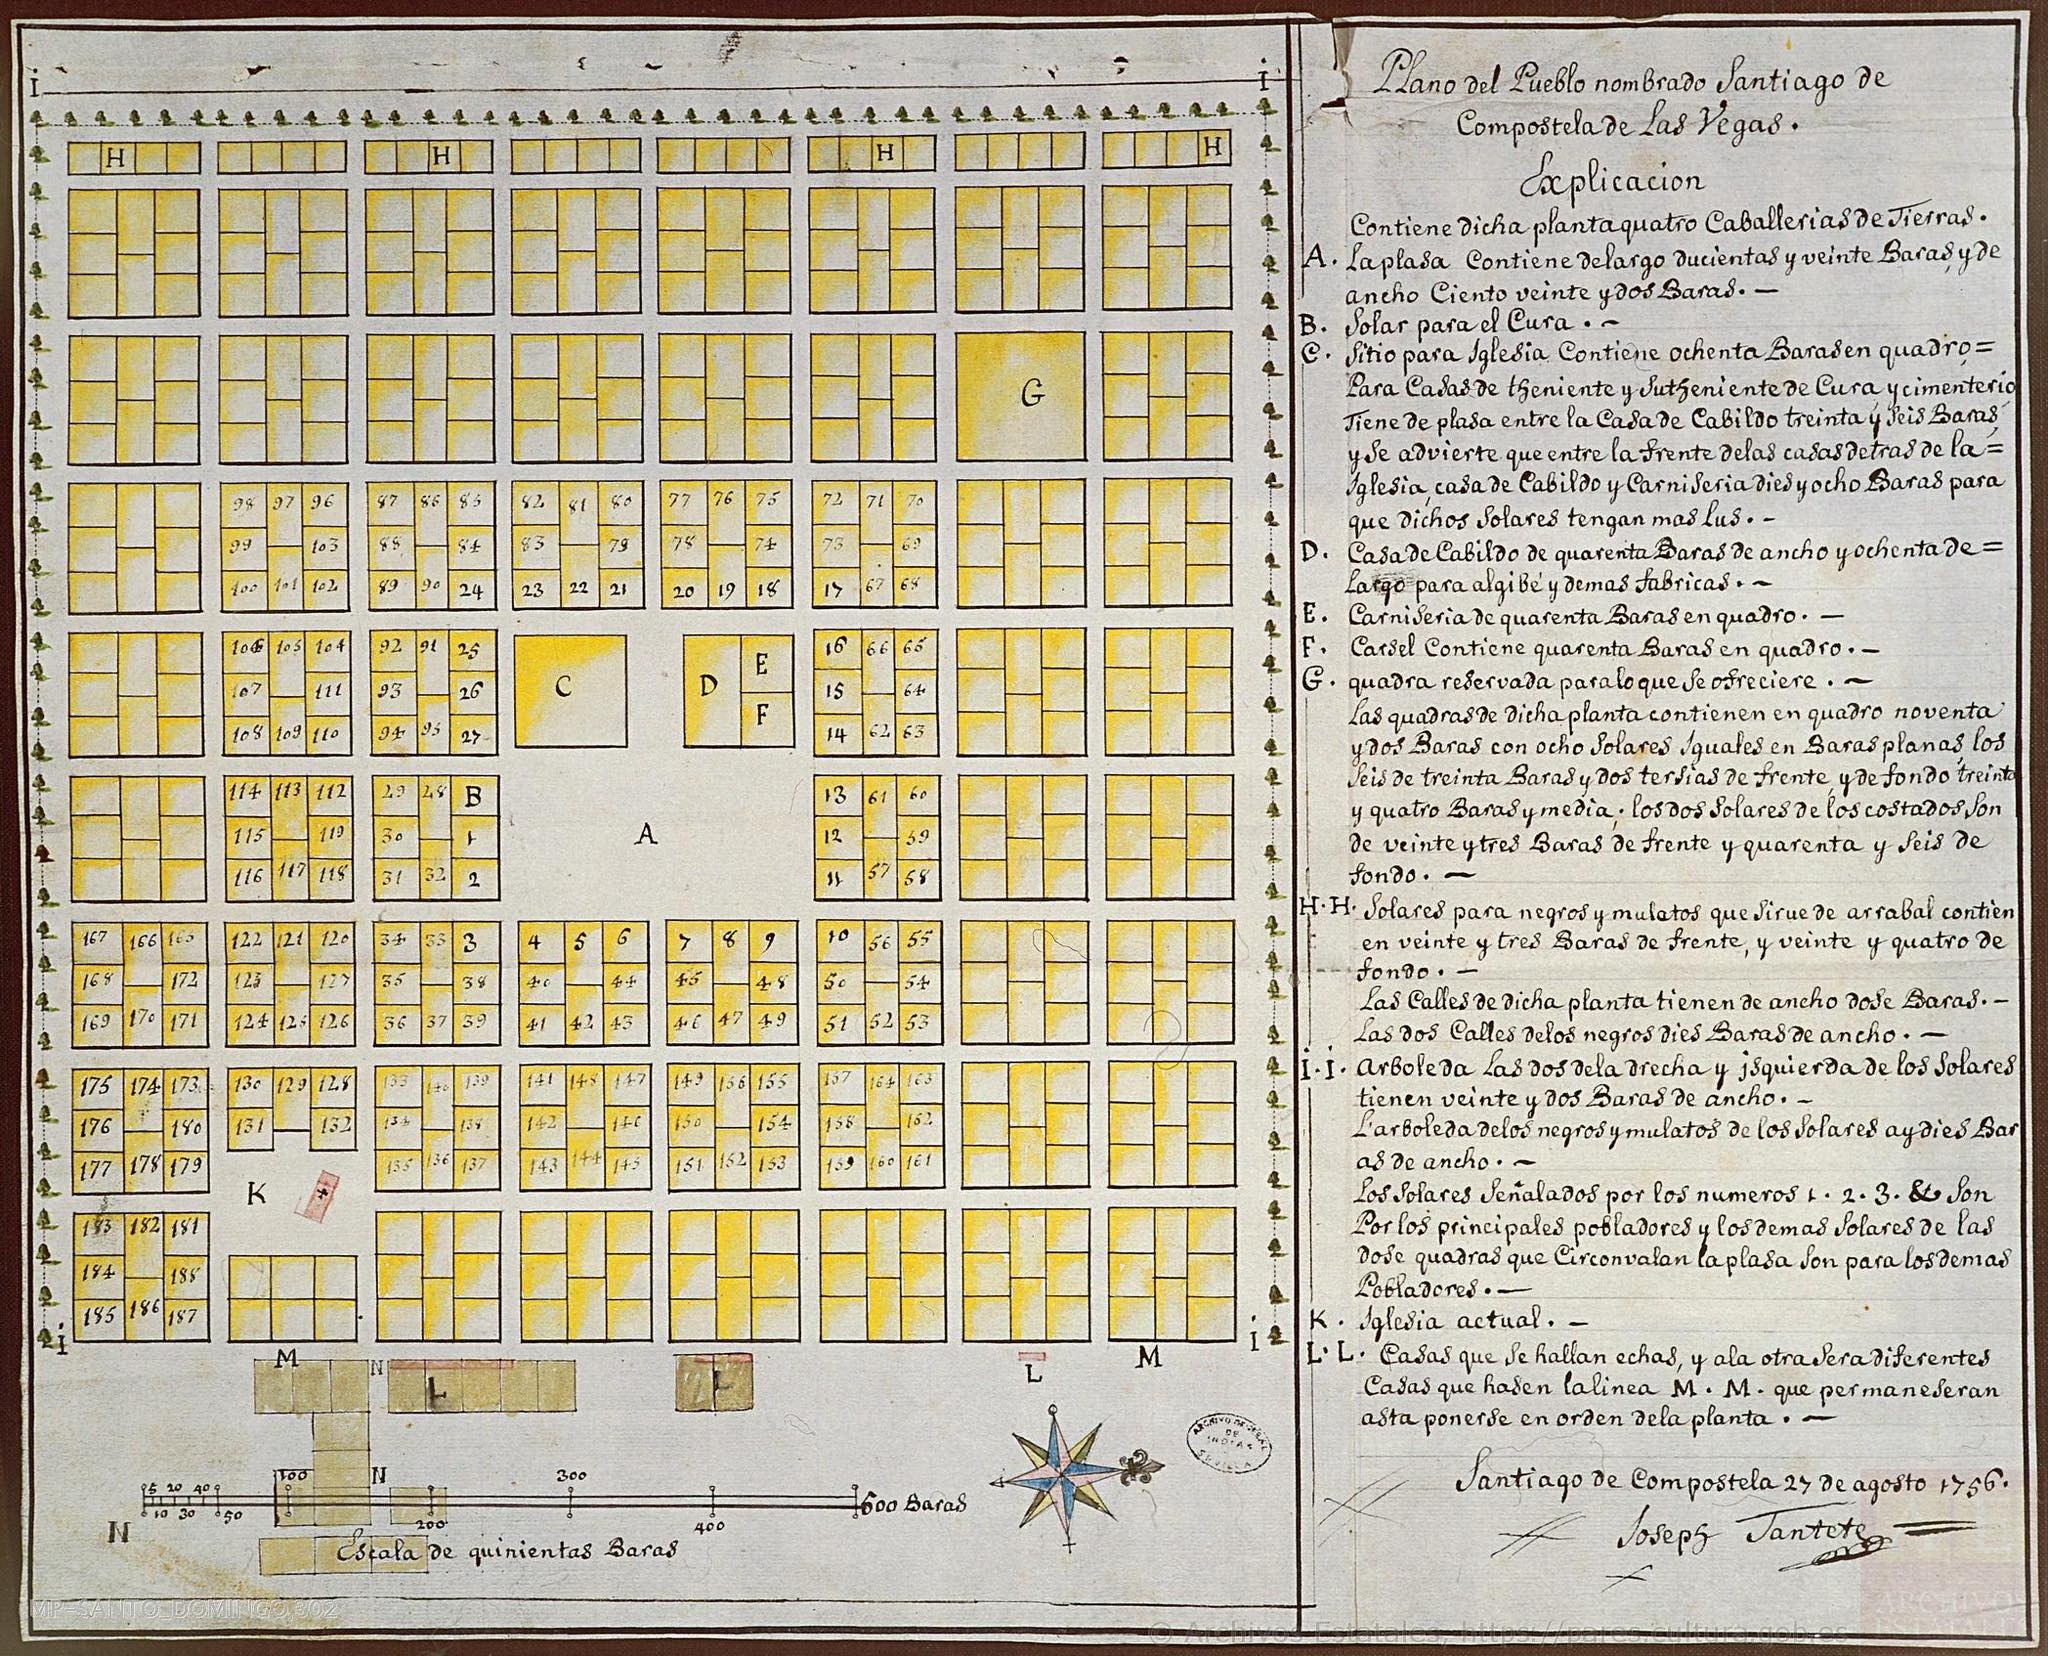 Plano del Pueblo nombrado Santiago de
Compostela de Las Vegas.
Explicacion
Contiene dicha planta quatro Caballerias de Tierras.
A. La plasa Contiene de largo ducientas y veinte Baras, y de
ancho Ciento veinte y dos Baras.
B. Solar para el Cura.
C. Sitio para Iglesia Contiene ochenta Baras en quadro=
Para Casas de theniente y sutheniente de Cura, y cimenterio
Tiene de plasa entre la Casa de Cabildo treinta y seis Baras,
y se advierte que entre la frente de las casas detras de la=
Iglesia, casa de Cabildo y Carniseria dies y ocho Baras para
que dichos Solares tengan mas lus.
D. Casa de Cabildo de quarenta Baras de ancho y ochenta de=
Largo para algibe y demas fabricas.
E. Carniseria de quarenta Baras en quadro.
F. Carsel Contiene quarenta Baras en quadro.
G. quadra reservada para lo que se ofreciere.
Las quadras de dicha planta contienen en quadro noventa
y dos Baras con ocho Solares iguales en Baras planas, los
seis de treinta Baras y dos tersias de frente, y de fondo treinta
y quatro Baras y media; los dos Solares de los costados son
de veinte y tres Baras de frente y quarenta y seis de
fondo.
H.H. Solares para negros y mulatos que sirue de arrabal contien
en veinte y tres Baras de frente, y veinte y quatro de
fondo.
Las Calles de dicha planta tienen de ancho dose Baras.
Las dos Calles de los negros dies Baras de ancho.
i.i. Arboleda Las dos de la drecha y isquierda de los Solares
tienen veinte y dos Baras de ancho.
L'arboleda de los negros y mulatos de los Solares ay dies Bar
as de ancho.
Los Solares Señalados por los numeros 1. 2. 3. & son
Por los principales pobladores y los demas Solares de las
dose quadras que Circonvalan la plasa son para los demas
Pobladores.
K. Iglesia actual.
L.L. Casas que se hallan echas, y ala otra sera diferentes
Casas que hasen la linea M.M. que permaneseran
asta ponerse en orden de la planta.
Santiago de Compostela 27 de agosto 1756.
Joseph Tantete
i i
H H H H
G
98 97 96 87 86 85 82 81 80 77 76 75 72 71 70
99 103 88 84 83 79 78 74 73 69
100 101 102 89 90 24 23 22 21 20 19 18 17 67 68
106 105 104 92 91 25 16 66 65
107 111 93 26 C D E F 15 64
108 109 110 94 95 27 14 62 63
114 113 112 29 28 B 13 61 60
115 119 30 1 A 12 59
116 117 118 31 32 2 11 57 58
167 166 165 122 121 120 34 33 3 4 5 6 7 8 9 10 56 55
168 172 123 127 35 38 40 44 45 48 50 54
169 170 171 124 125 126 36 37 39 41 42 43 46 47 49 51 52 53
175 174 173 130 129 128 133 140 139 141 148 147 149 156 155 157 164 163
176 180 131 132 134 138 142 146 150 154 158 162
177 178 179 135 136 137 143 144 145 151 152 153 159 160 161
K
183 182 181
184 188
185 186 187
i i
M N L L L M
N
5 20 40 100 300 600 Baras
10 30 50 200 400
N
Escala de quinientas Baras
ARCHIVO GENERAL
DE
INDIAS
SEVILLA
MP-SANTO_DOMINGO,302
© Archivos Estatales, https://pares.cultura.gob.es
ARCHIVO
ESTATALE